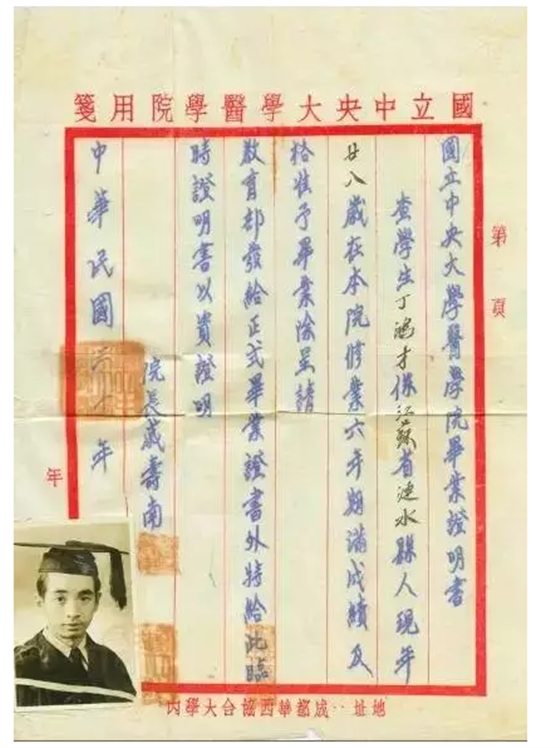 國立中央大學醫學院用箋
第 頁
國立中央大學醫學院畢業證明書
查學生丁鴻才係江蘇省漣水縣人現年
廿八歲在本院修業六年期滿成績及
格准予畢業除呈請
教育部發給正式畢業證書外特給此臨
時證明書以資證明
院長戚壽南
中華民國三十年
年
地址··成都華西協合大學內